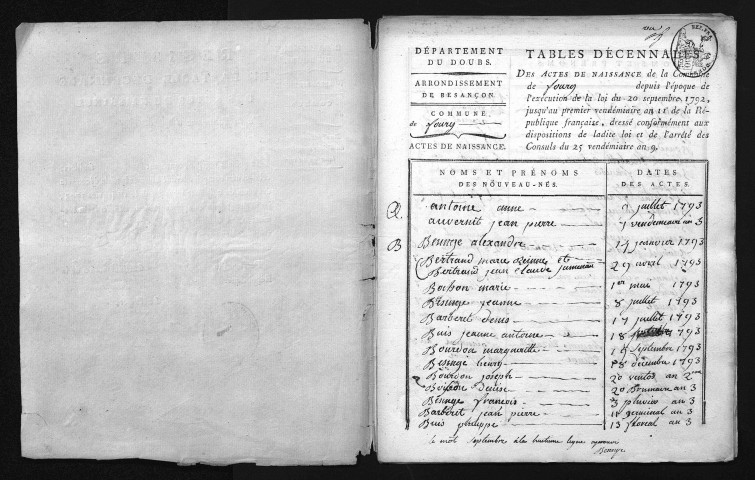 DÉPARTEMENT
DU DOUBS.
ARRONDISSEMENT
DE BESANÇON.
COMMUNE
de fourg
ACTES DE NAISSANCE.
TABLES DÉCENNALES
DES ACTES DE NAISSANCE de la Commune
de fourg depuis l'époque de
l'exécution de la loi du 20 septembre 1792,
jusqu'au premier vendémiaire an 11 de la Ré-
publique française, dressé conformément aux
dispositions de ladite loi et de l'arrêté des
Consuls du 25 vendémiaire an 9.
NOMS ET PRÉNOMS
DES NOUVEAU-NÉS.
DATES
DES ACTES.
A. antoine anne juillet 1793
auvernit jean pierre vendemiaire an 3
B Besnage alexandre 14 janvier 1793
Bertrand marie Reinne et
Bertrand jean claude jumeau 29 avril 1793
Bochon marie 1er mai 1793
Besnage jeanne 8 juillet 1793
Barberet denis 17 juillet 1793
Buis jeanne antoine 18 1793
Bourdon margueritte 18 septembre 1793
Besnage henry décembre 1793
Bourdon joseph 20 ventos an 2
Boisson denise 20 Brumaire an 3
Besnage françois 3 pluvios an 3
Barberet jean pierre 11 germinal an 3
Buis philippe 13 floreal an 3
le mot septembre à la huitieme ligne approuvé